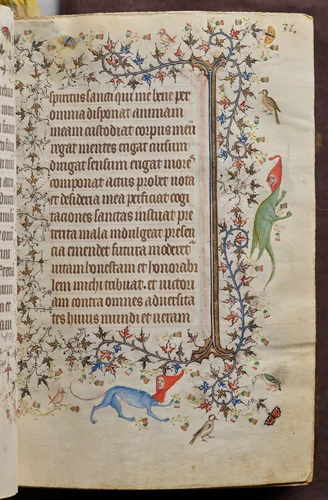 32.
spiritus sancti qui me bene per
omnia disponat animam
meam custodiat corpus meū
regat mentes erigat cursum
dirigat sensum erigat mores
componat actus probet uota
et desideria mea perficiat cogi
taciones sanctas instituat pre
terita mala indulgeat presen
cia emendet futura moderet
uitam honestam et honorabi
lem michi tribuat et uictori
am contra omnes aduersita
tes huius mundi et ueram